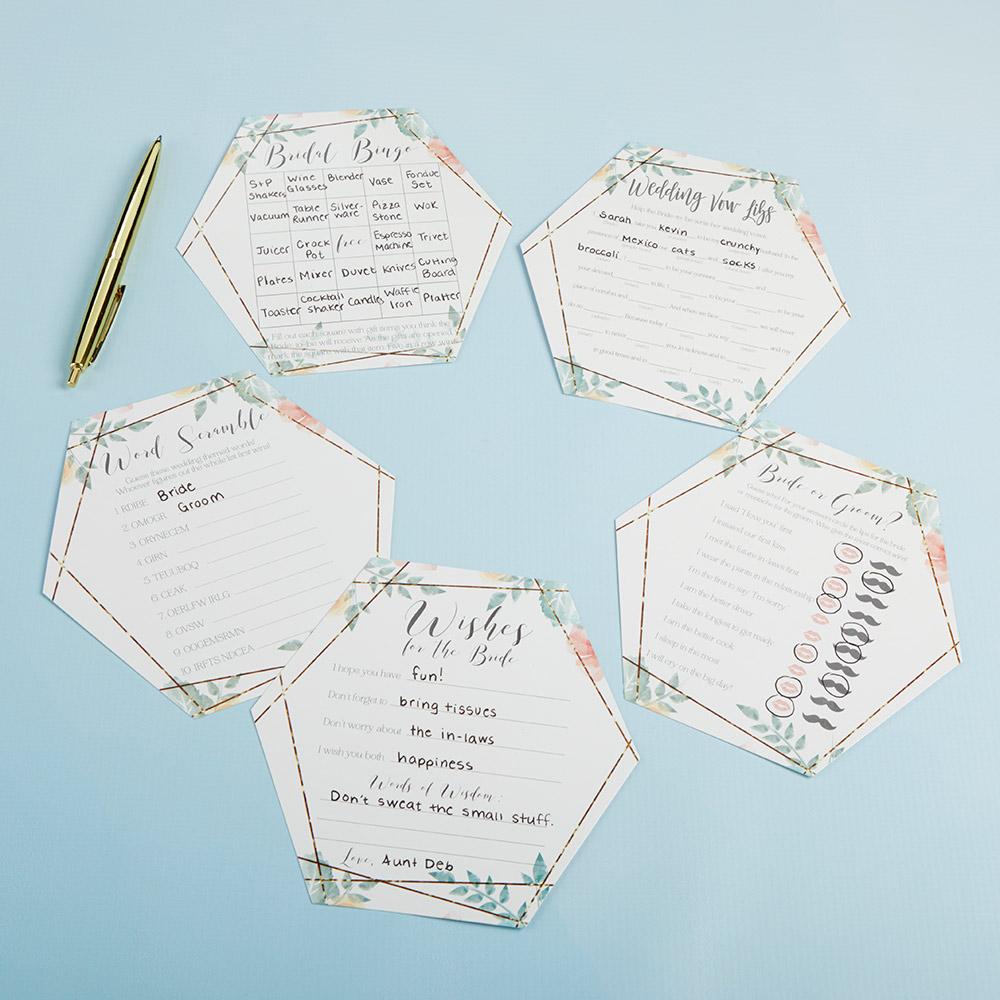 Bridal Bingo
S+P Shakers Wine Glasses Blender Vase Fondue Set
Vacuum Table Runner Silver-ware Pizza Stone Wok
Juicer Crock Pot free Espresso Machine Trivet
Plates Mixer Duvet Knives Cutting Board
Toaster Cocktail Shaker Candles Waffle Iron Platter
Fill out each square with gift items you think the
Bride-to-be will receive. As the gifts are opened,
mark the square with that item. Five in a row wins!
Wedding Vow Libs
Help the Bride-to-be write her wedding vows!
I, Sarah, take you, kevin, to be my crunchy husband. In the
presence of Mexico our cats and socks, I offer you my
broccoli. I to be your
your devoted to life, I to be your and
place of comfort and . And where we face , we will never
do so . Because today I you, and my
to never you. In sickness and to
in good times and in , I you
Word Scramble
Guess these wedding themed words!
Whoever figures out the whole list first wins!
1. RDIBE Bride
2. OMOGR Groom
3. ORYNECEM
4. GIRN
5. TEUUBOQ
6. CEAK
7. OERLFW IRLG
8. OVSW
9. OOGEMSRMN
10. IRFTS NDCEA
Bride or Groom?
Guess who! For your answers circle the lips for the bride
or mustache for the groom. Who gets the most correct wins!
I said "I love you" first
I initiated our first kiss
I met the future in-laws first
I wear the pants in the relationship
I'm the first to say "I'm sorry"
I am the better driver
I take the longest to get ready
I am the better cook
I sleep in the most
I will cry on the big day!
Wishes
for the Bride
I hope you have fun!
Don't forget to bring tissues
Don't worry about the in-laws
I wish you both happiness
Words of Wisdom:
Don't sweat the small stuff.
Love, Aunt Deb